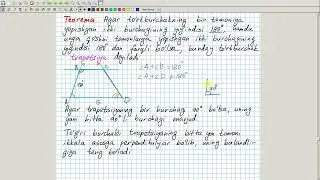 Teorema Agar to'rtburchakning bir tomoniga
yopishgan ikki burchagining yig'indisi 180° bunda
unga qo'shni tomonlariga yopishgan ikki burchagining
yig'indisi 180° dan farqli bo'lsa, bunday to'rtburchak
trapetsiya deyiladi
∠A+∠B=180°
∠A+∠D≠180°
Agar trapetsiyaning bir burchagi 90° bo'lsa, uning
yana bitta 90° li burchagi mavjud.
To'g'ri burchakli trapetsiyaning bitta yon tomoni
ikkala asosga perpendikulyar bo'lib, uning balandli-
giga teng bo'ladi